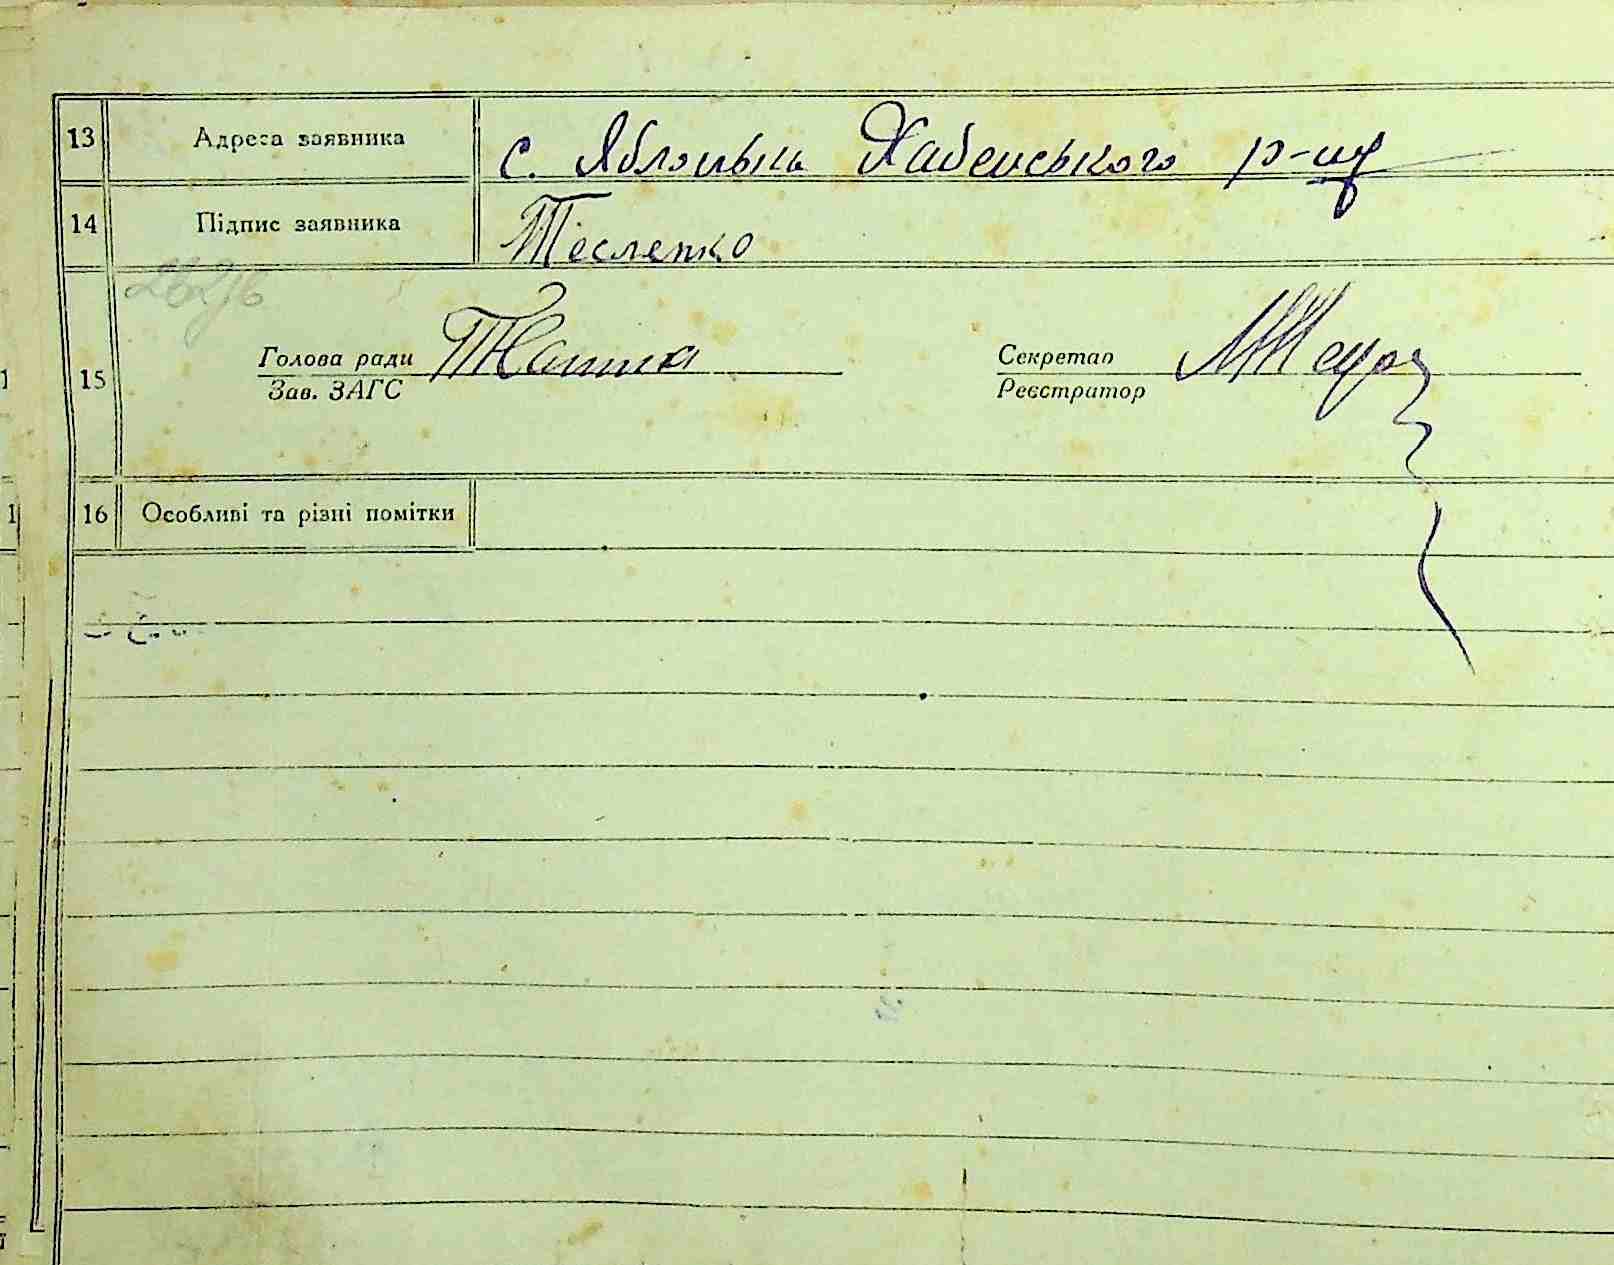 13 Адреса заявника с. Яблонька Хабенського р-ну
14 Підпис заявника Тесленко
15
Голова ради Секретар
Зав. ЗАГС Реєстратор
16 Особливі та різні помітки